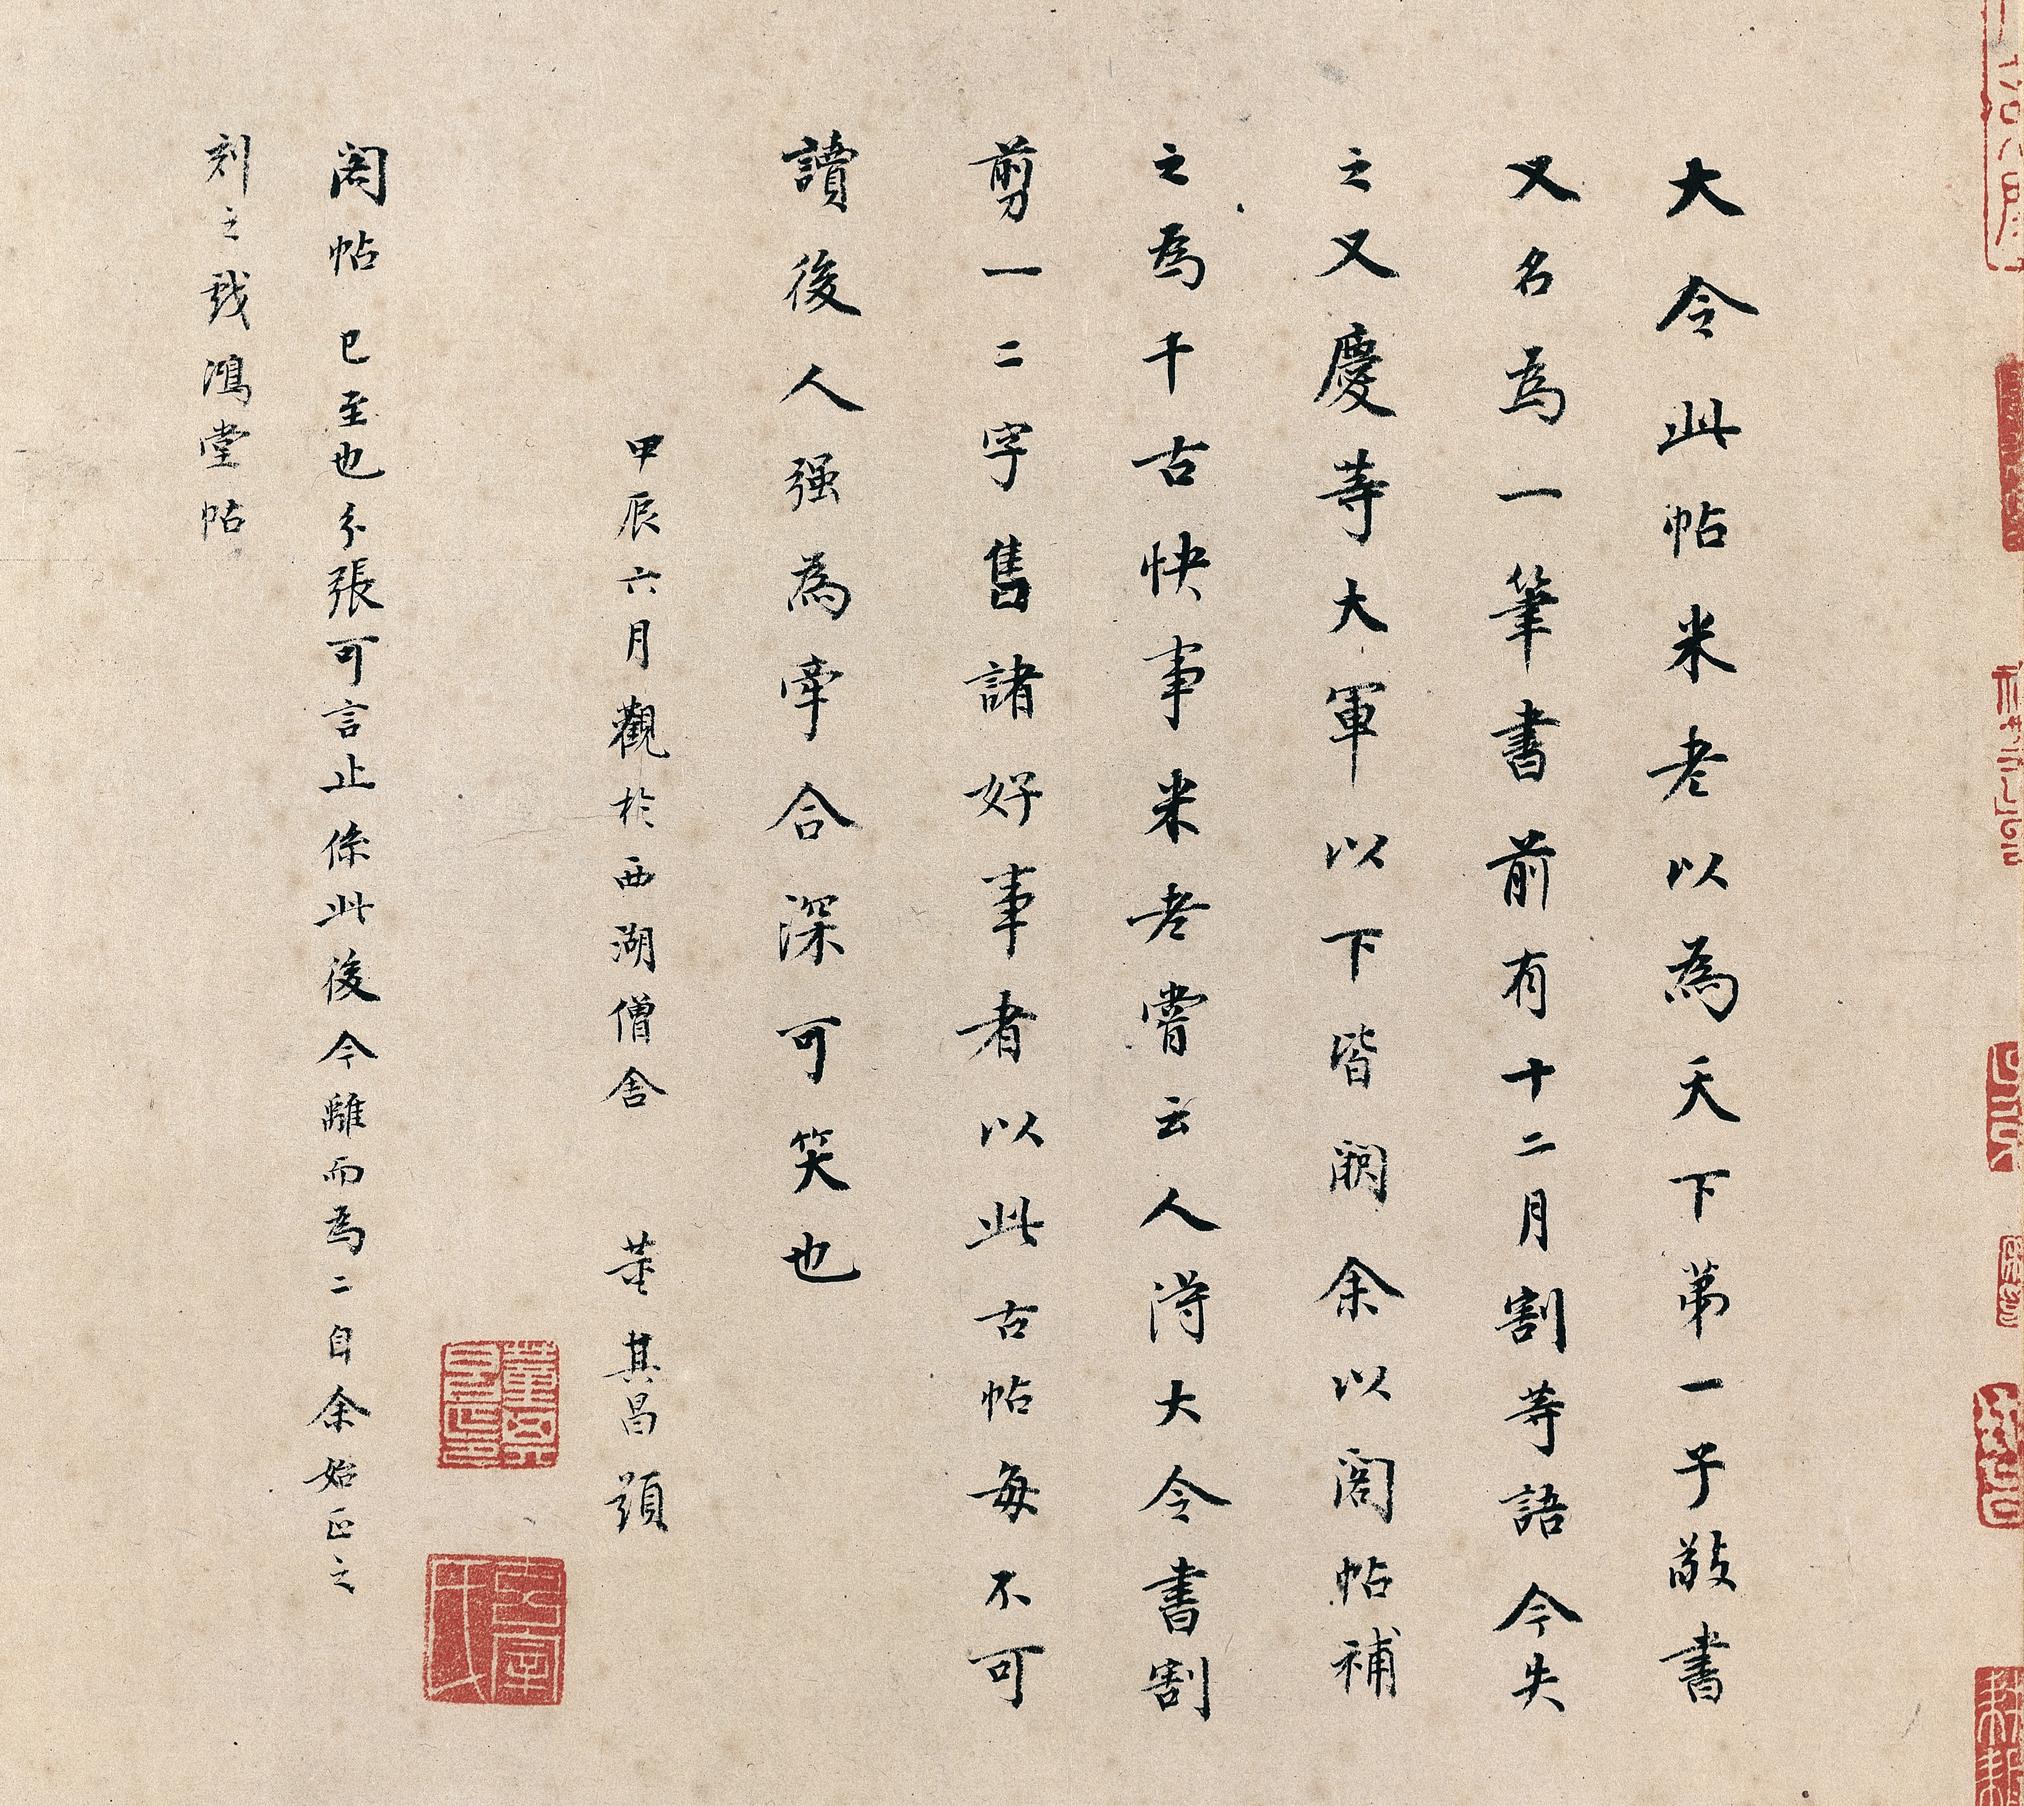 大令此帖米老以為天下第一子敬書
又名為一筆書前有十二月割等語今失
之又慶等大軍以下皆闕余以閣帖補
之為千古快事米老嘗云人得大令書割
剪一二字售諸好事者以此古帖每不可
讀後人强為牽合深可笑也
甲辰六月觀於西湖僧舍 董其昌題
閣帖已至也分張可言止條此後今離而為二自余始正之
刻之戏鴻堂帖
董其昌印
太史氏